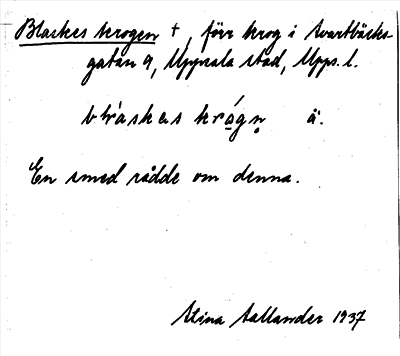 Blaskes krogen †, förr krog i Svartbäcks-
gatan 9, Uppsala stad, Upps. l.
blaskes krógn ä.
En smed rådde om denna.
Stina Sallander 1937